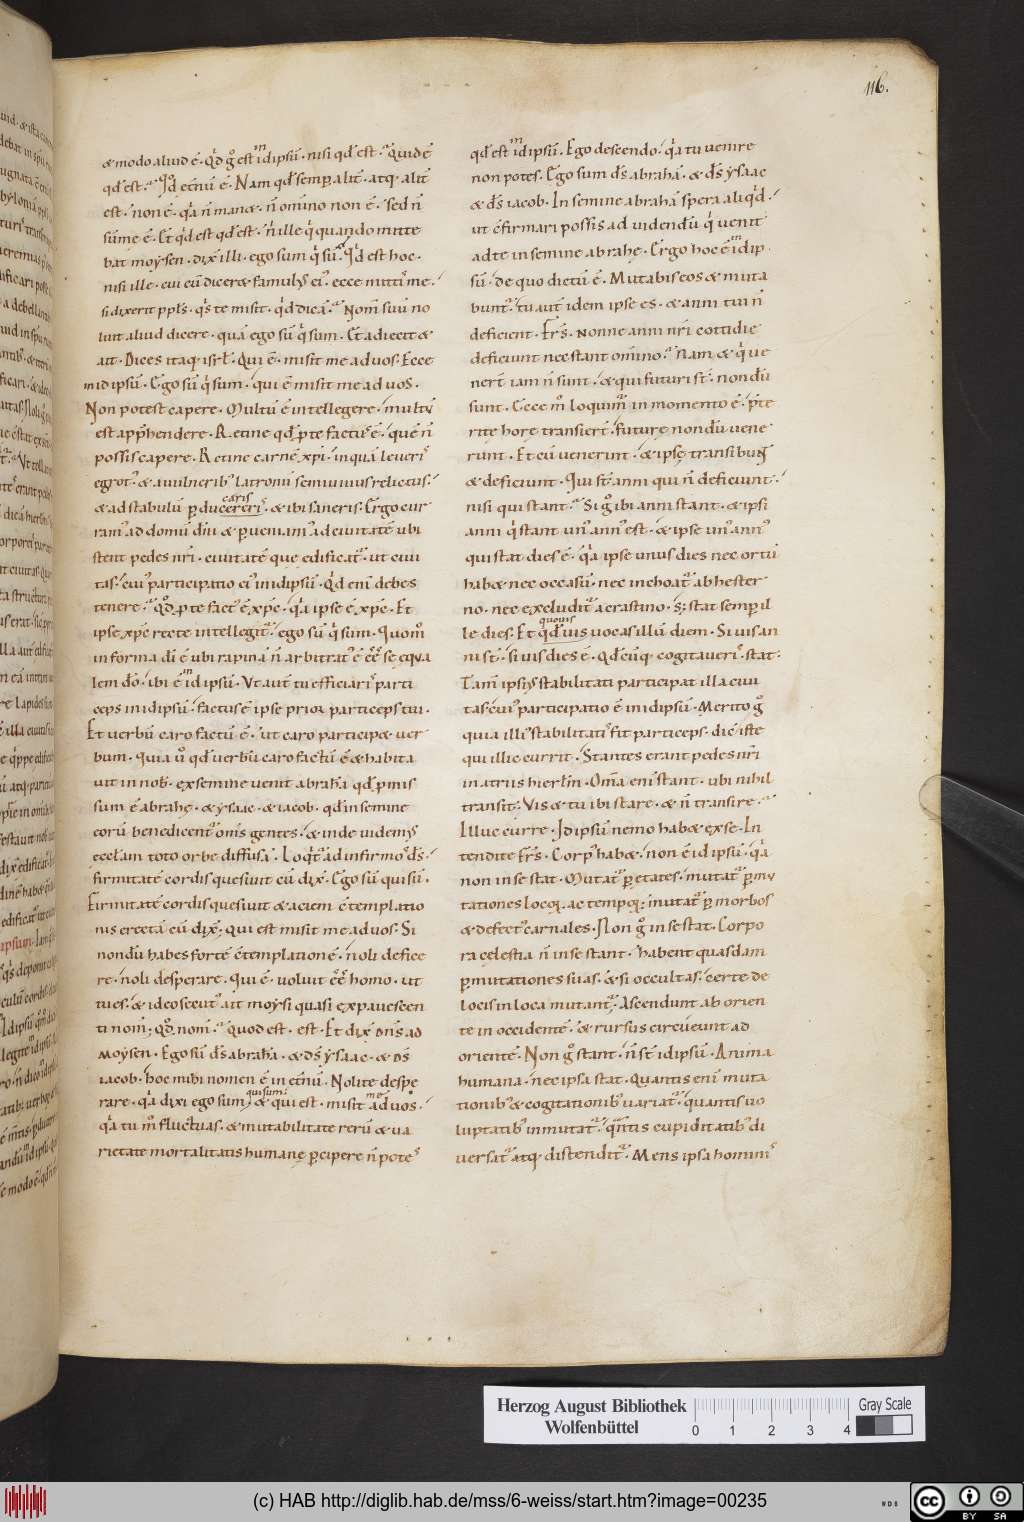 116.
& modo aliud ē. Qd g̊ est īdipsū. nisi qd est. Quid ē
qd est. Qd et̄nū ē. Nam qd semp alit̄. atq; alit̄
est. non ē. q̇a n̄ man&. n̄ omīno non ē. sed n̄
sūme ē. Et q̇d est qd est. n̄ ille q̇ quando mitte
bat moysen. dix̄ illi. ego sum q̇ sū. q̇d est hoc.
nisi ille. cui cū dicer& famulus ei'. ecce mitti me.
si dixerit ppl's. q's te misit. q̇d dicā. Nom̄ suū no
luit aliud dicere. quā ego sū q̇ sum. Et adiecit &
ait. Dices itaq; isrl. Qui ē. misit me ad uos. Ecce
in idipsū. Ego sū q̇ sum. qui ē misit me ad uos.
Non potest capere. Multū ē intellegere. multū
est app̄hendere. Retine qd p te factus ē. quē n̄
possis capere. Retine carnē xp̄i. in quā leuaris
egrot'. & a uulnerib' latronū semiuiuus relictus.
& ad stabulū p ducereris. & ibi saneris. Ergo cur
caris
ram' ad domū dn̄i & p ueniam' ad ciuitatē ubi
stent pedes nr̄i. ciuitatē que edificat'. ut ciui
tas. cui' participatio ei' in idipsū. Qd eni debes
tenere. Qd p te fact' ē xp̄c. q̇a ipse ē xp̄c. Et
ipse xp̄c recte intellegit'. ego sū q̇ sum. Quom̊
in forma dī ē ubi rapinā n̄ arbitrat' ē ēē se equa
lem dō. ibi ē īdipsū. Vt aut̄ tu efficiaris parti
ceps in idipsū. factus ē ipse prior particeps tui.
Et uerbū caro factū ē. ut caro particip& uer
bum. Quia ů qd uerbū caro factū ē & habita
uit in nob. ex semine uenit abrahā qd pmis
sum ē abrahę. & ysaac. & iacob. qd in semine
eorū benedicent' om̄s gentes. & inde uidemus
eccl̄am toto orbe diffusā. Loqt' ad infirmos ds̄.
firmitatē cordis quesiuit cū dix̄. Ego sū qui sū.
Firmitatē cordis quesiuit & aciem c̄templatio
nis erectā cū dix̄; qui est misit me ad uos. Si
nondū habes fortē c̄templationē. noli defice
re. noli desperare. Qui ē. uoluit ēē homo. ut
tu es. & ideo secut' ait moysi quasi expauescen
ti nom̄; Qd nom̄. Quod est. est. Et dix̄ dn̄s ad
moysen. Ego sū ds̄ abrahā. & ds̄ ysaac. & ds̄
iacob. hoc mihi nomen ē in et̄nū. Nolite despe
rare. q̇a dixi ego sum; & qui est. misit ad uos.
qui sum; me
q̇a tu m̊ fluctuas. & mutabilitate rerū & ua
rietate mortalitatis humanę pcipere n̄ potes
qd est īdipsū. Ego descendo. q̇a tu uenire
non potes. Ego sum ds̄ abrahā. & ds̄ ysaac
& ds̄ iacob. In semine abrahā spera aliq̇d.
ut c̄firmari possis ad uidendū q̇ uenit
ad te in semine abrahę. Ergo hoc ē īdip
sū. de quo dictū ē. Mutabis eos & muta
bunt'. tu aut̄ idem ipse es. & anni tui n̄
deficient. Frs̄. nonne anni nr̄i cottidie
deficiunt nec stant om̄ino. Nam & q̇ ue
nerē iam n̄ sunt. & qui futuri st̄. nondū
sunt. Ecce m̊ loquim' in momento ē. p̄te
rite horę transierē. futurę nondū uene
runt. Et cū uenerint. & ipsę transibunt
& deficiunt. Qui st̄ anni qui n̄ deficiunt.
nisi qui stant. Si g̊ ibi anni stant. & ipsi
anni q̇ stant un' ann' est. & ipse un' ann'
qui stat dies ē. q̇a ipse unus dies nec ortū
hab& nec occasū. nec inchoat' ab hester
no. nec excludit' a crastino. s; stat semp il
le dies. Et q̇d uis uocas illū diem. Si uis an
quouis
ni st̄. si uis dies ē. Qd cūq; cogitaueris. stat.
Tam̄ ipsius stabilitati participat illa ciui
tas cui' participatio ē in idipsū. Merito g̊
quia illi' stabilitatis fit particeps. dic̄ iste
qui illic currit. Stantes erant pedes nr̄i
in atriis hierl̄m. Om̄a eni stant. ubi nihil
transit. Vis & tu ibi stare. & n̄ transire.
Illuc curre. Idipsū nemo hab& ex se. In
tendite frs̄. Corp' hab&. non ē idipsū. q̇a
non in se stat. Mutat' p etates. mutat' p mu
tationes locoꝝ. ac tempoꝝ. mutat' p morbos
& defect' carnales. Non g̊ in se stat. Corpo
ra cęlestia n̄ in se stant. habent quasdam
pmutationes suas. & si occultas. certe de
locis in loca mutant'. Ascendunt ab orien
te in occidentē. & rursus circūeunt ad
orientē. Non g̊ stant. n̄ st̄ idipsū. Anima
humana. nec ipsa stat. Quantis eni muta
tionib' & cogitationib' uariat'. quantis uo
luptatib' inmutat'. qn̄tis cupiditatib' di
uersat' atq; distendit'. Mens ipsa hominis
Herzog August Bibliothek
Wolfenbüttel
0 1 2 3 4
Gray Scale
(c) HAB http://diglib.hab.de/mss/6-weiss/start.htm?image=00235
CC BY SA